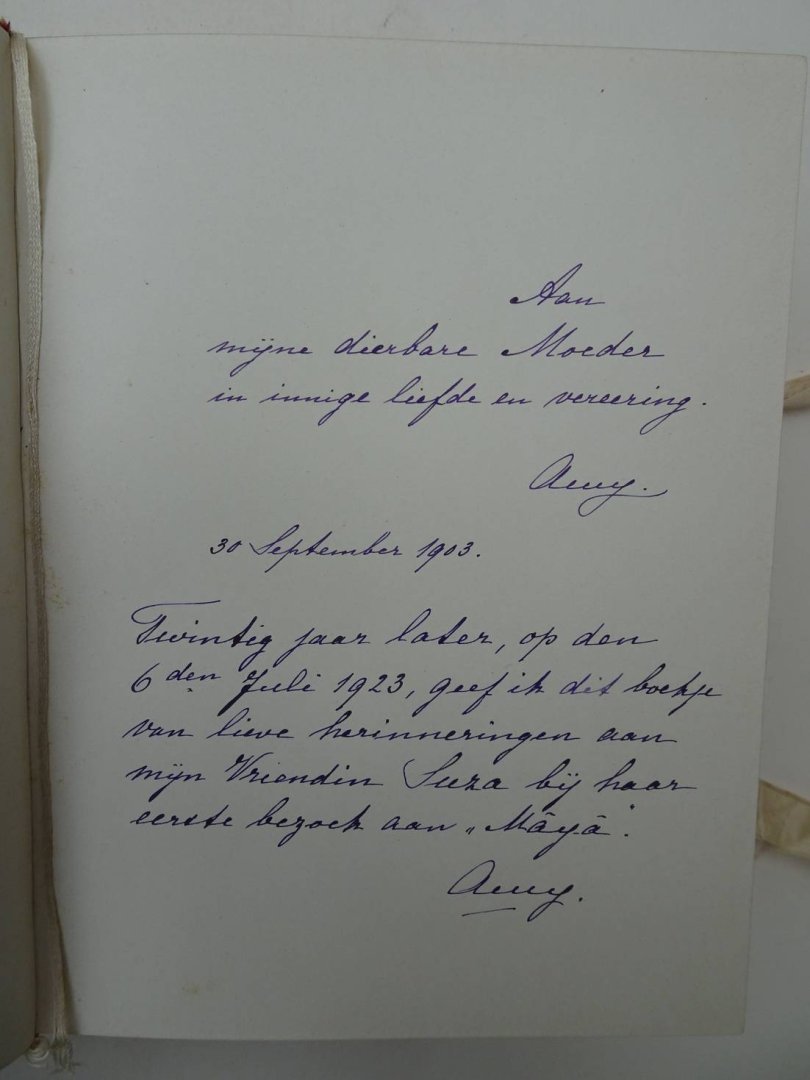 Aan
mijne dierbare Moeder
in innige liefde en vereering.
Amy.
30 September 1903.
Twintig jaar later, op den
6den Juli 1923, geef ik dit boekje
van lieve herinneringen aan
mijn Vriendin Suza bij haar
eerste bezoek aan „Mâyâ".
Amy.